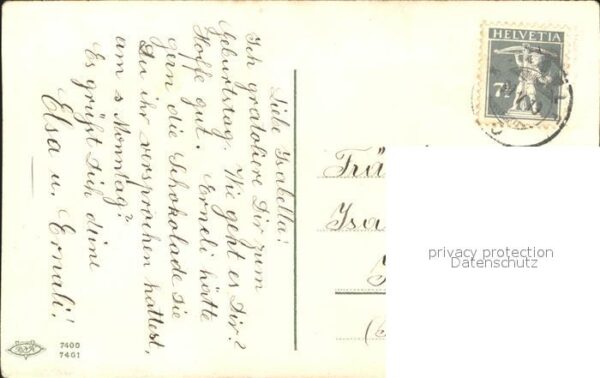 Liebe Isabella!
Ich gratoliere Dir zum
Geburtstag. Wie geht es Dir?
Hoffe gut. Erneli hätte
gern die Schokolade die
Du ihr versprochen hattest,
am s Monntag?
Es grüßt Dich deine
Elsa u. Ernali!
HELVETIA
7½
Frä
Isa
privacy protection
Datenschutz
7400
7401